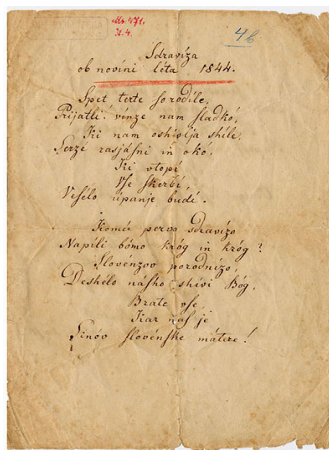 Ms. 471.
II. 4.
46
Sdravíza
ob novini léta 1844.
Spet terte so rodíle,
Prijatli! vinze nam sladkó,
Ki nam oshívlja shíle,
Serzé rasjásni in okó,
Ki vtopí
Vse skerbí,
Veselo úpanje budí.
Komú pervo sdravízo
Napíli bómo króg in króg!
Slovénzov porodnízo,
Deshélo násho shívi Bóg,
Brate vse,
Kar nas je
Sinóv slovénske mátere!